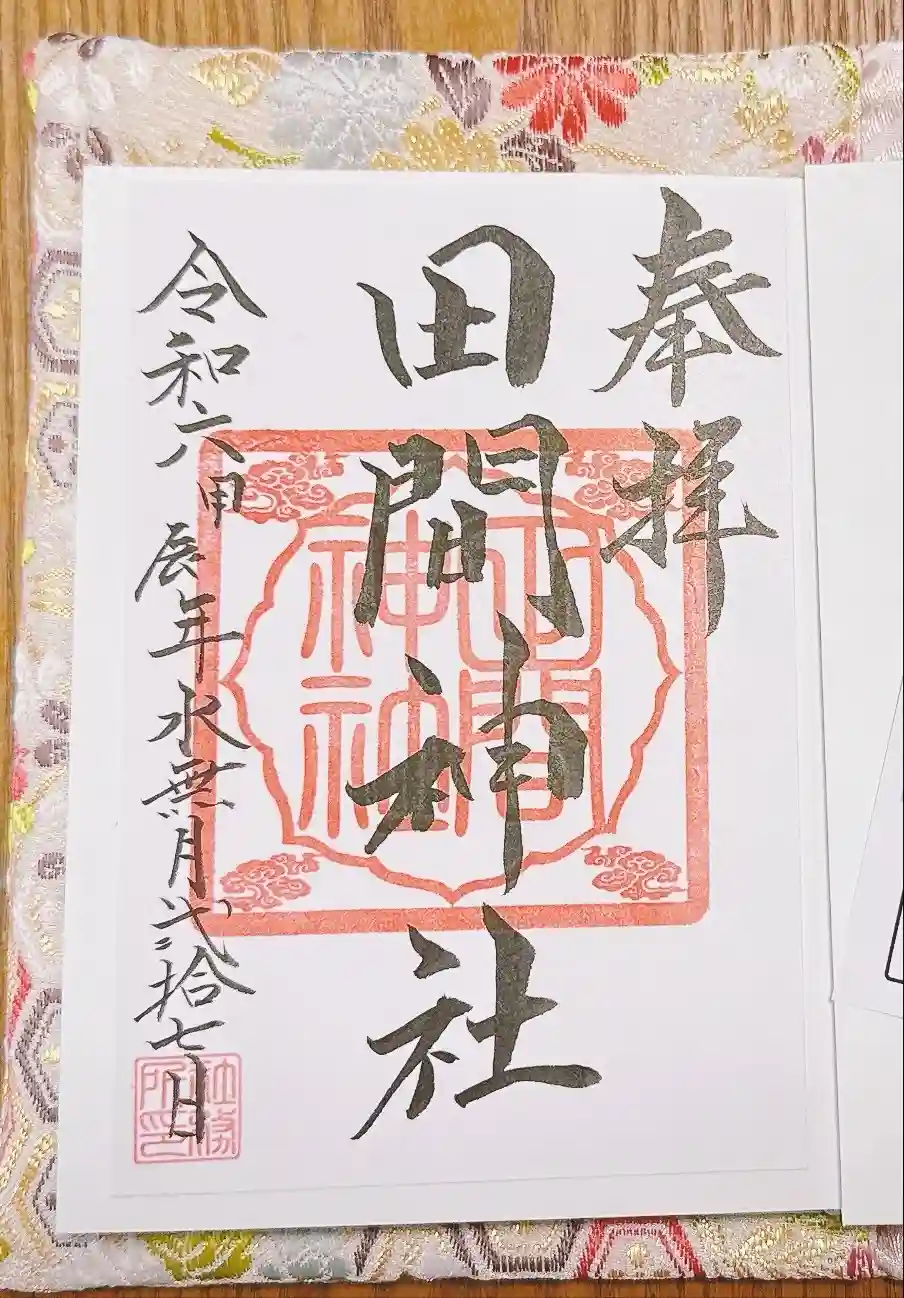 奉拝
田間神社
田間神社
令和六甲辰年水無月弐拾七日
社務所印